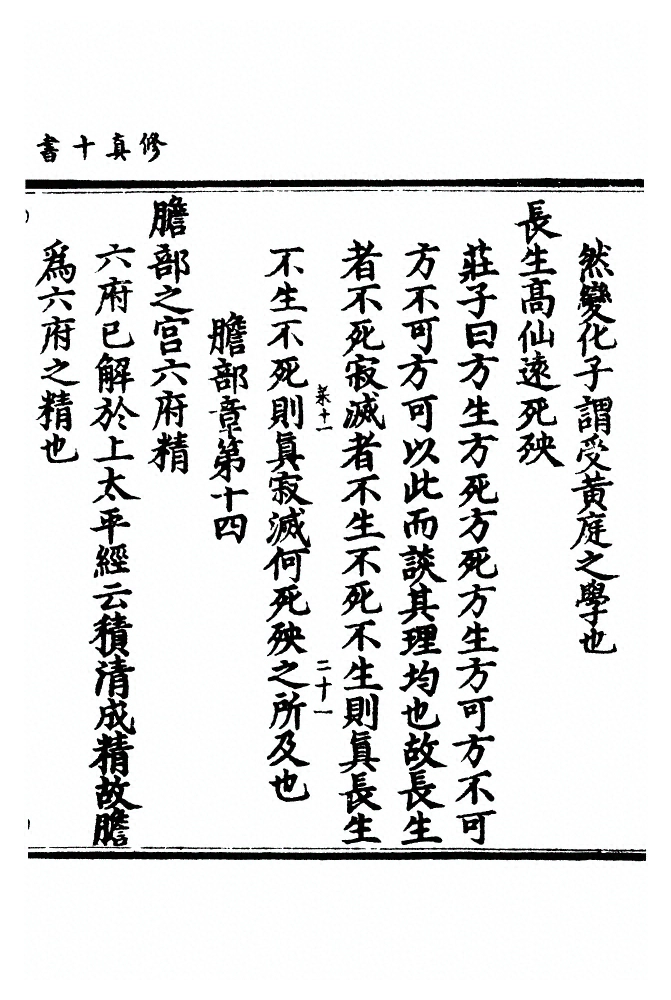 修真十書
然變化子謂受黃庭之學也
長生高仙遠死殃
莊子曰方生方死方死方生方可方不可
方不可方可以此而談其理均也故長生
者不死寂滅者不生不死不生則眞長生
菜十一 二十一
不生不死則眞寂滅何死殃之所及也
膽部章第十四
膽部之宮六府精
六府已解於上太平經云積清成精故膽
爲六府之精也